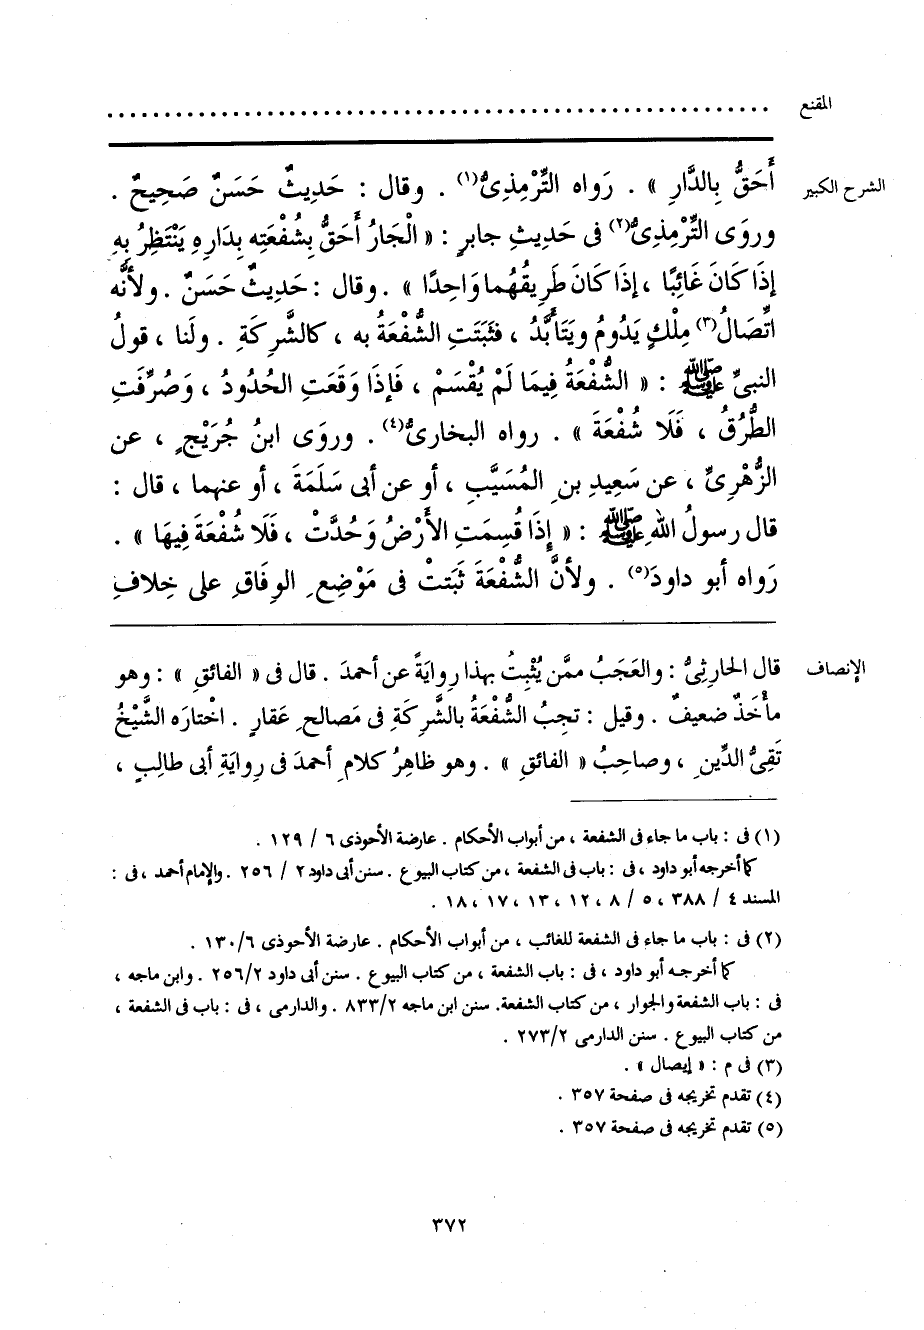 المقنع ............................................................
الشرح الكبير أَحَقُّ بِالدَّارِ » . رَواه التِّرْمِذِىُّ(١) . وقال : حَدِيثٌ حَسَنٌ صَحِيحٌ .
وروَى التِّرْمِذِىُّ(٢) فى حَدِيثِ جابرٍ : « الْجَارُ أَحَقُّ بِشُفْعَتِه بِدَارِهِ يَنْتَظِرُ بِهِ
إذَا كَانَ غَائِبًا ، إذَا كَانَ طَرِيقُهُما وَاحِدًا » . وقال : حَدِيثٌ حَسَنٌ . ولأنَّه
اتِّصَالُ(٣) مِلْكٍ يَدُومُ ويَتَأَبَّدُ ، فثَبَتَتِ الشُّفْعَةُ به ، كالشَّرِكَةِ . ولَنا ، قولُ
النبىِّ ﷺ : « الشُّفْعَةُ فِيمَا لَمْ يُقْسَمْ ، فَإذَا وَقَعَتِ الحُدُودُ ، وَصُرِّفَتِ
الطُّرُقُ ، فَلَا شُفْعَةَ » . رواه البخارىُّ(٤) . وروَى ابنُ جُرَيْجٍ ، عن
الزُّهْرِىِّ ، عن سَعِيدِ بنِ المُسَيَّبِ ، أو عن أبى سَلَمَةَ ، أو عنهما ، قال :
قال رسولُ اللهِ ﷺ : « إِذَا قُسِمَتِ الأَرْضُ وَحُدَّتْ ، فَلَا شُفْعَةَ فِيهَا » .
رَواه أبو داودَ(٥) . ولأنَّ الشُّفْعَةَ ثَبَتتْ فى مَوْضِعِ الوِفَاقِ على خِلافِ
الإنصاف قال الحارثِىُّ : والعَجَبُ ممَّن يُثْبِتُ بهذا رِوايَةً عن أحمدَ . قال فى « الفائقِ » : وهو
مأْخَذٌ ضعيفٌ . وقيل : تجِبُ الشُّفْعَةُ بالشَّرِكَةِ فى مَصالحِ عَقارٍ . اخْتارَه الشَّيْخُ
تَقِىُّ الدِّينِ ، وصاحِبُ « الفائقِ » . وهو ظاهِرُ كلامِ أحمدَ فى رِوايَةِ أبى طالِبٍ ،
(١) فى : باب ما جاء فى الشفعة ، من أبواب الأحكام . عارضة الأحوذى ٦ / ١٢٩ .
كما أخرجه أبو داود ، فى : باب فى الشفعة ، من كتاب البيوع . سنن أبى داود ٢ / ٢٥٦ . والإمام أحمد ، فى :
المسند ٤ / ٣٨٨ ، ٥ / ٨ ، ١٢ ، ١٣ ، ١٧ ، ١٨ .
(٢) فى : باب ما جاء فى الشفعة للغائب ، من أبواب الأحكام . عارضة الأحوذى ١٣٠/٦ .
كما أخرجه أبو داود ، فى : باب الشفعة ، من كتاب البيوع . سنن أبى داود ٢٥٦/٢ . وابن ماجه ،
فى : باب الشفعة والجوار ، من كتاب الشفعة. سنن ابن ماجه ٨٣٣/٢ . والدارمى ، فى : باب فى الشفعة ،
من كتاب البيوع . سنن الدارمى ٢٧٣/٢ .
(٣) فى م : « إيصال » .
(٤) تقدم تخريجه فى صفحة ٣٥٧ .
(٥) تقدم تخريجه فى صفحة ٣٥٧ .
٣٧٢